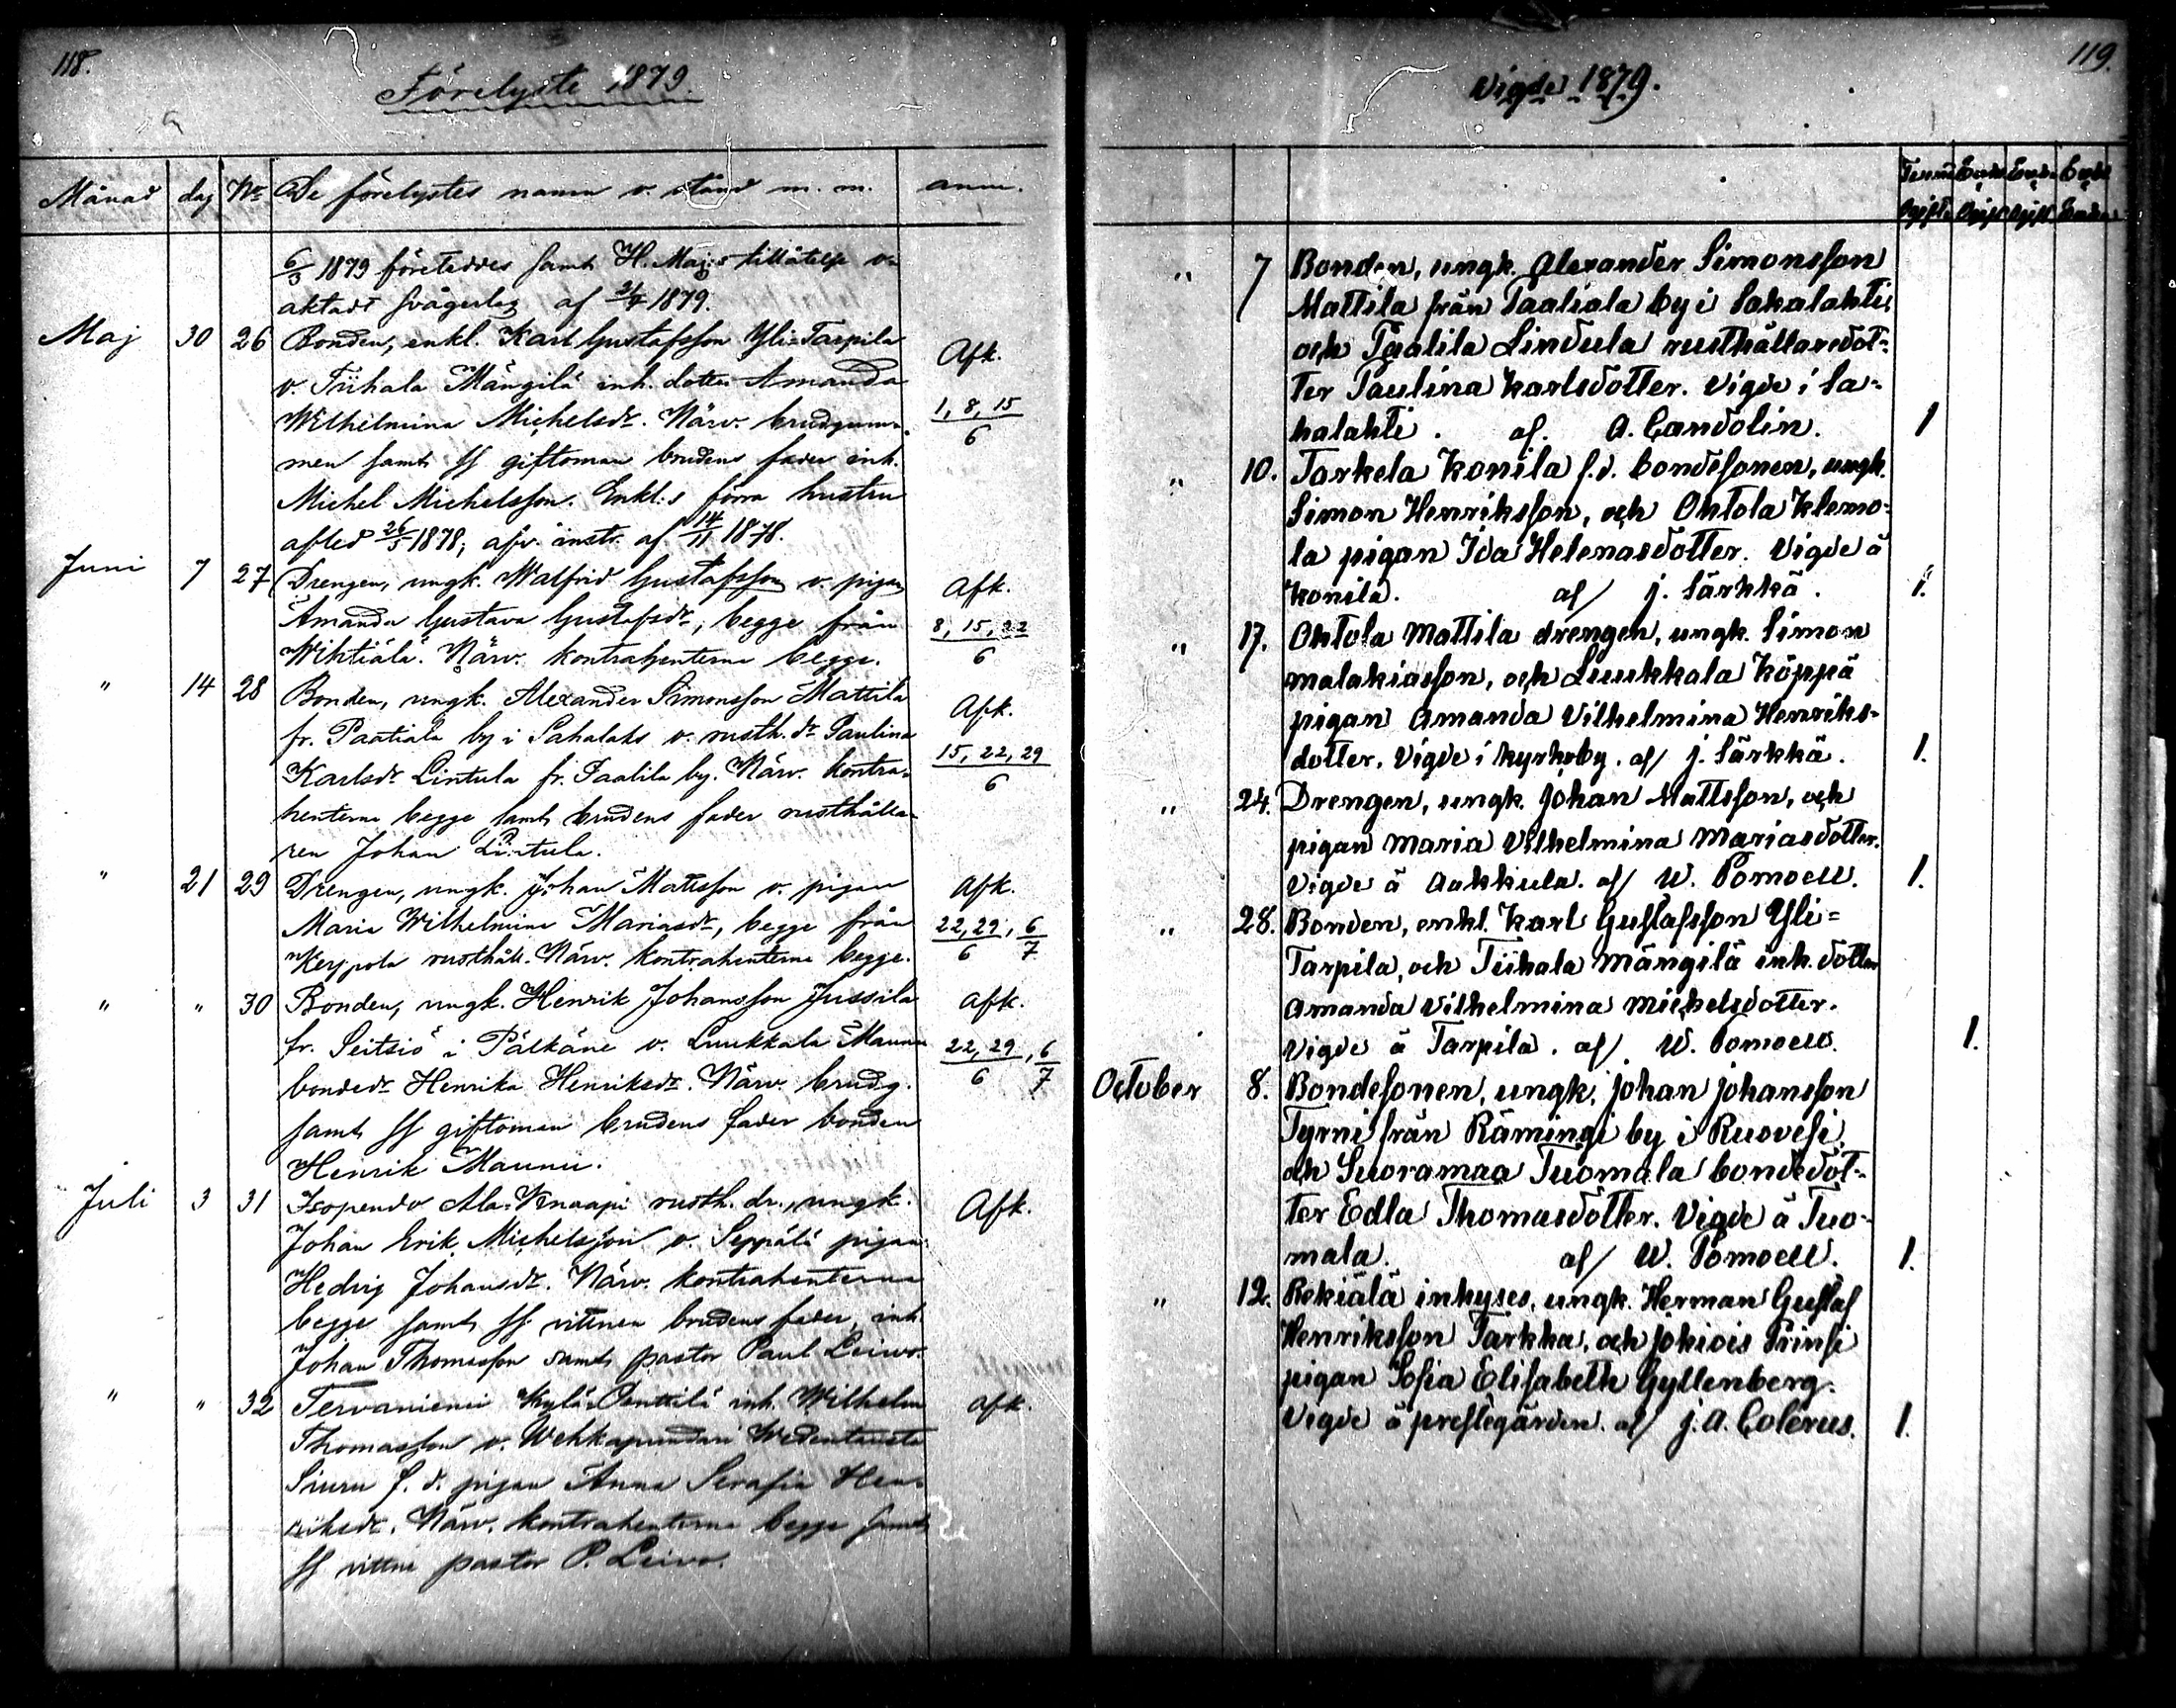 118.
Förelyste 1879.
Månad dag No De förelystes namn o. stånd m. m. anm.
6/3 1879 företeddes samt H. Maj:s tillåtelse o-
aktadt svågerlag af 21/4 1879.
Maj 30 26 Bonden, enkl. Karl Gustafsson Yli-Tarpila Afk.
o. Tiihala Mängilä inh. dotter Amanda
Wilhelmina Michelsdr. Närv. brudgum- 1, 8, 15/6
men samt ss giftoman brudens fader inh.
Michel Michelsson. Enkl:s förra hustru
afled 26/5 1878; afv. instr. af 14/11 1878.
Juni 7 27 Drengen, ungk. Walfrid Gustafsson o. pigan Afk.
Amanda Gustava Gustafsdr, begge från 8, 15, 22/6
Wihtiälä. Närv. kontrahenterna begge.
" 14 28 Bonden, ungk. Alexander Simonsson Mattila Afk.
fr. Paatiala by i Sahalaks o. rusth. dr Paulina
Karlsdr Lintula fr. Paalila by. Närv. kontra- 15, 22, 29/6
henterna begge samt brudens fader rusthålla-
ren Johan Lintula.
" 21 29 Drengen, ungk. Johan Matsson o. pigan Afk.
Maria Wilhelmina Mariasdr, begge från 22, 29/6, 6/7
rusthåll. Närv. kontrahenterna begge.
" " 30 Bonden, ungk. Henrik Johansson Jussila Afk.
fr. Seitsiö i Pälkäne o. Luukkala Maunu 22, 29/6, 6/7
bondedr Henrika Henriksdr. Närv. brudg.
samt ss giftoman brudens fader bonden
Henrik Maunu.
Juli 3 31 Isopendo Ala-Knaapi rusth. dr., ungk. Afk.
Johan Erik Michelsson o. Seppälä pigan
Hedvig Johansdr. Närv. kontrahenterna
begge samt ss vittnen brudens fader, inh.
Johan Thomasson samt pastor Paul Leivo.
" " 32 Tervaniemi Kylä-Penttilä inh. Wilhelm Afk.
Thomasson o. Wehkapuntari
Siuru f. d. pigan Anna Serafia Hen-
riksdr. Närv. kontrahenterna begge samt
ss vittne pastor P. Leivo.
119.
Vigde 1879.
" 7 Bonden, ungk. Alexander Simonsson
Mattila från Paatiala by i Sahalahti,
och Paalila Lindula rusthållaredot-
ter Paulina Karlsdotter. Vigde i Sa-
halahti. af. A. Candolin. 1
" 10. Tarkela Konila f.d. bondesonen, ungk.
Simon Henriksson, och Ohtola Klemo-
la pigan Ida Helenasdotter. Vigde å
Konila. af J. Särkkä. 1.
" 17. Ohtola Mattila drengen, ungk. Simon
Malakiasson, och Luukkala Köppä
pigan Amanda Vilhelmina Henriks-
dotter. Vigde i kyrkoby. af J. Särkkä. 1.
" 24. Drengen, ungk. Johan Mattsson, och
pigan Maria Vilhelmina Mariasdotter.
Vigde å Aakkula. af W. Pomoell. 1.
" 28. Bonden, enkl. Karl Gustafsson Yli=
Tarpila, och Tiihala Mängilä inh. dotter
Amanda Vilhelmina Michelsdotter.
Vigde å Tarpila. af W. Pomoell. 1.
October 8. Bondesonen, ungk. Johan Johansson
Tyrni från Rämingi by i Ruovesi,
och Suoramaa Tuomala bondedot-
ter Edla Thomasdotter. Vigde å Tuo-
mala. af W. Pomoell. 1.
" 12. Rekiälä inhyses, ungk. Herman Gustaf
Henriksson Tarkka, och Jokiois Prinsi
pigan Sofia Elisabeth Gyllenberg.
Vigde å prestegården. af J. A. Colerus. 1.